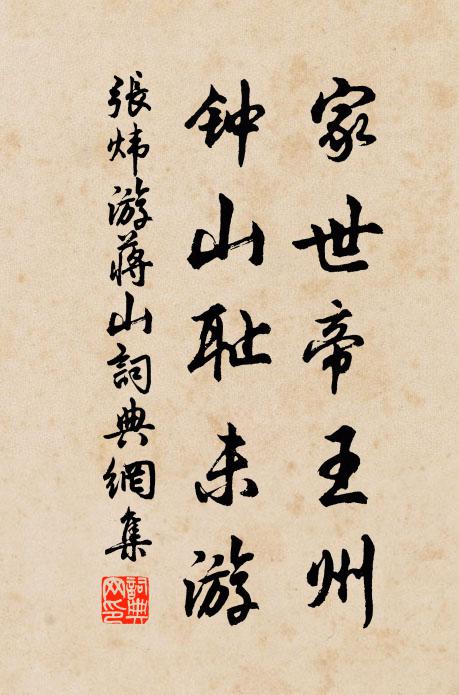 家世帝王州
钟山耻未游
張炜游蔣山詞典網集
詞典網印